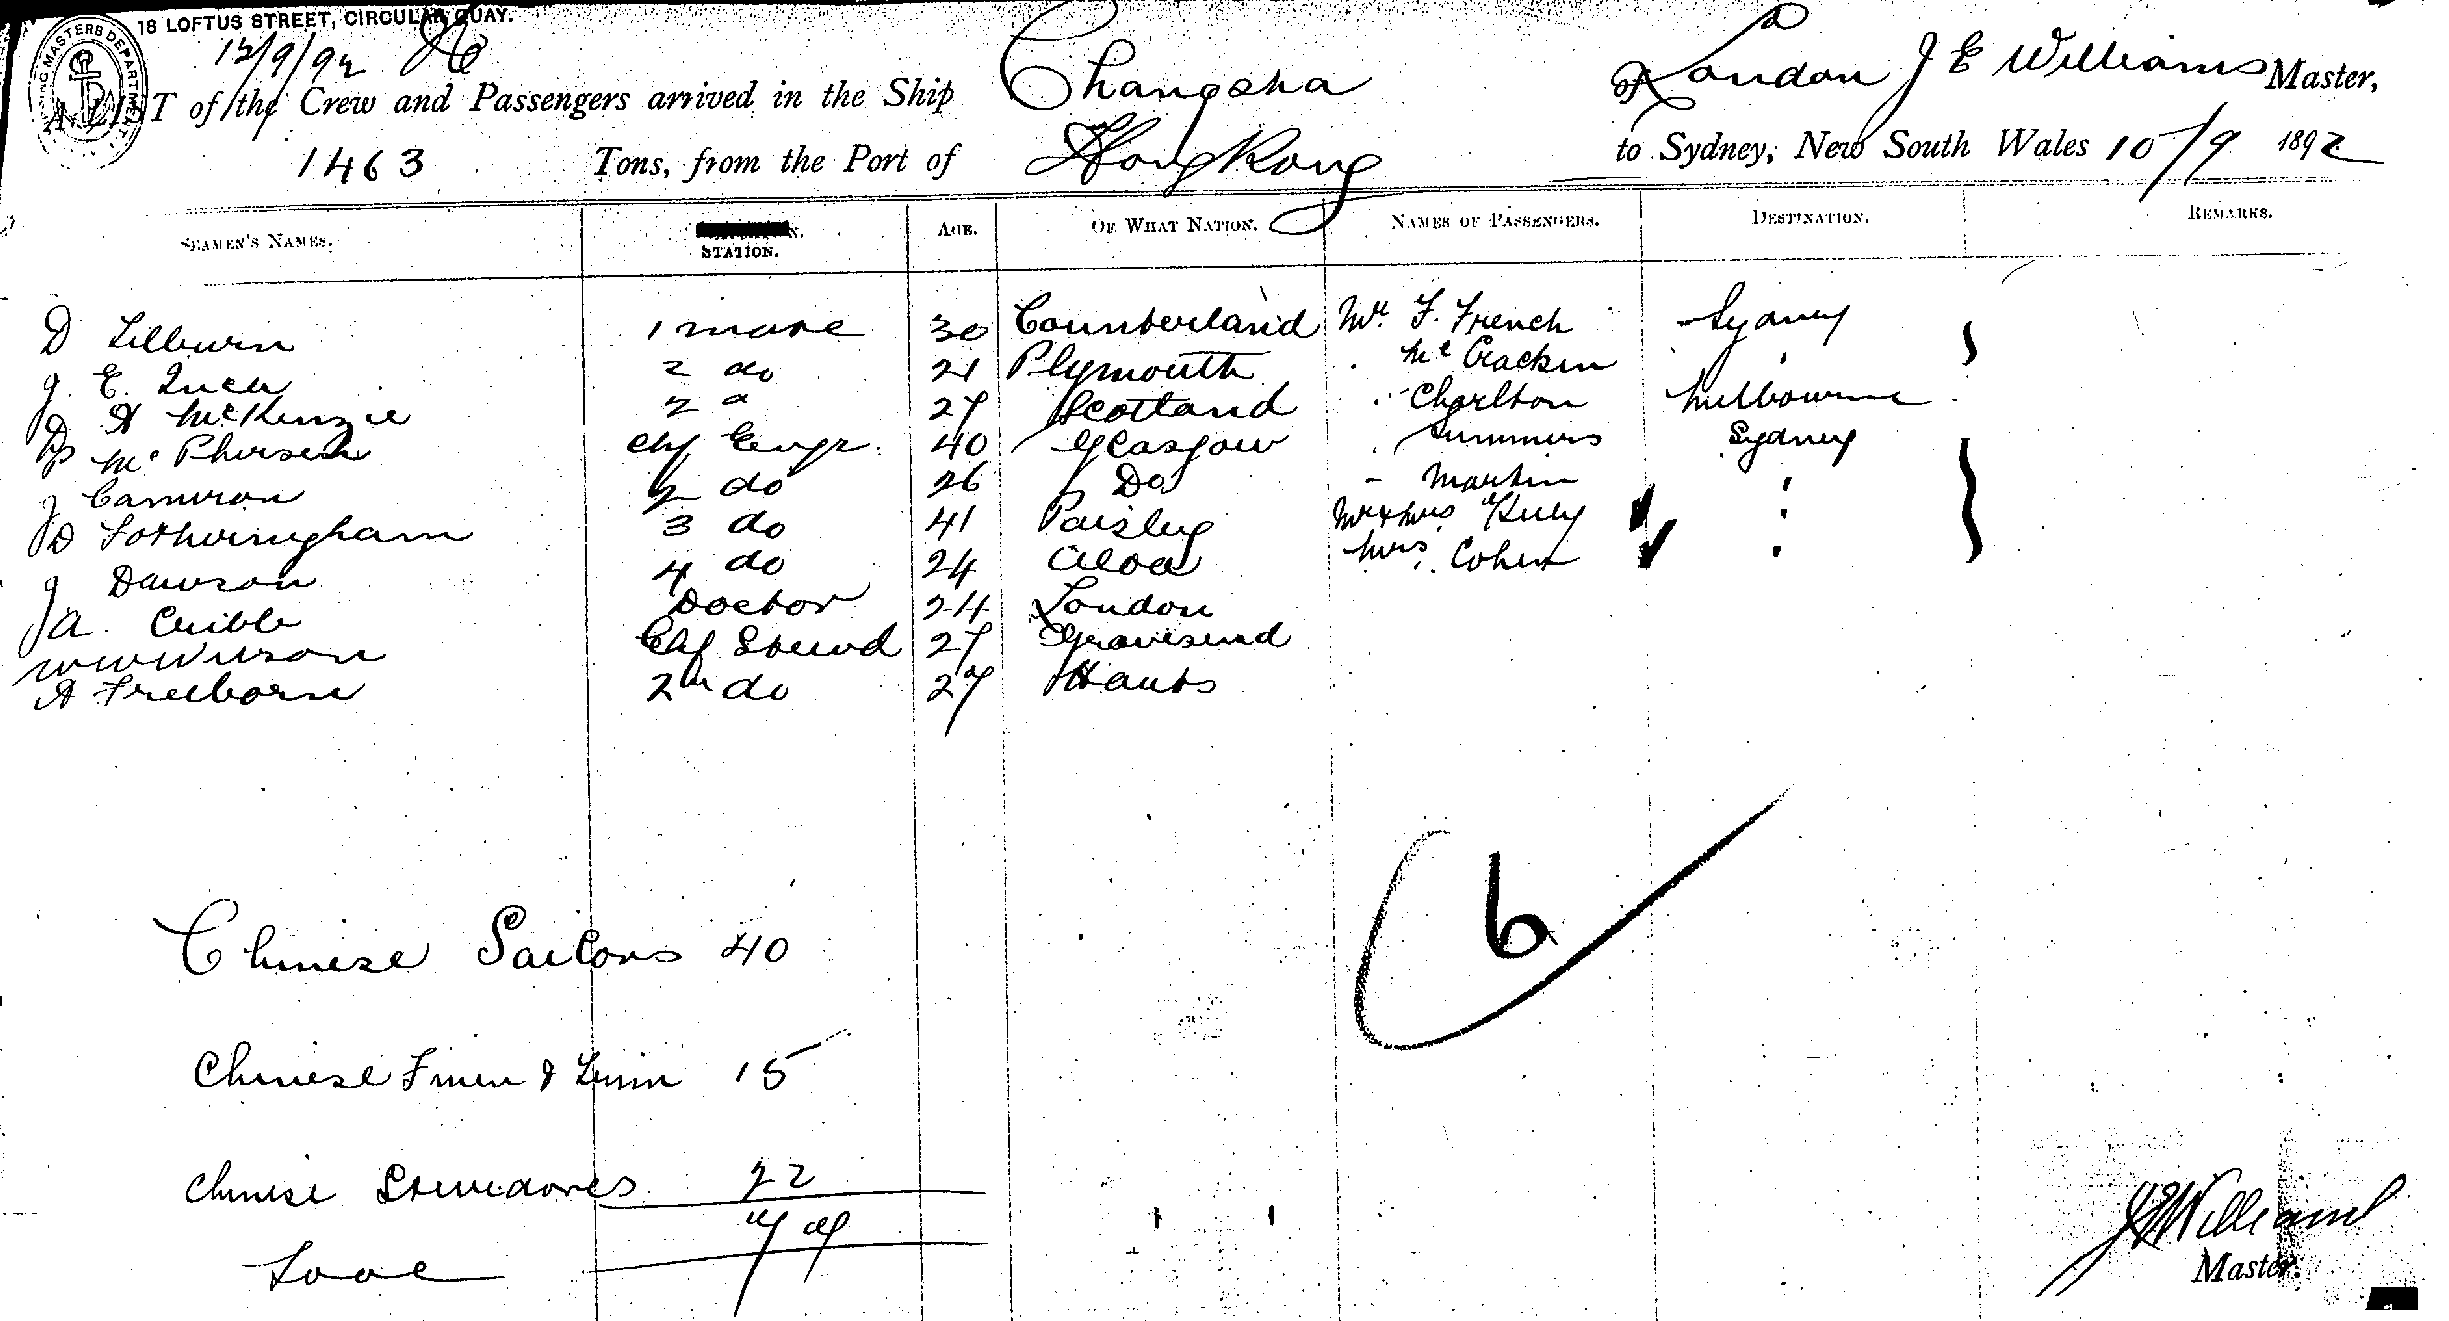 18 LOFTUS STREET, CIRCULAR QUAY.
12/9/92
A LIST of the Crew and Passengers arrived in the Ship Changsha of London J E Williams Master,
1463 Tons, from the Port of Hong Kong to Sydney, New South Wales 10/9 1892
SEAMEN'S NAMES. STATION. AGE. OF WHAT NATION. NAMES OF PASSENGERS. DESTINATION. REMARKS.
D Lilburn 1 mate 30 Cumberland Mr. F. French Sydney
J. E. 2 do 21 Plymouth " McCrackin "
A McKenzie 2 " 27 Scotland " Charlton Melbourne
D McPhersen Chf Engr. 40 Glasgow " Summers Sydney
J Cameron 2 do 26 Do " Martin "
D Fotheringham 3 do 41 Paisley Mr & Mrs "
J Dawson 4 do 24 Aloa Mrs. Cohen "
J A. Cribb Doctor 24 London
W W Wilson Chf Stewd 27 Gravesend
A Freeborn 2nd do 27 Hants
6
Chinese Sailors 40
Chinese Fmen & 15
Chinese Stewedores 22
77
J E Williams
Master.